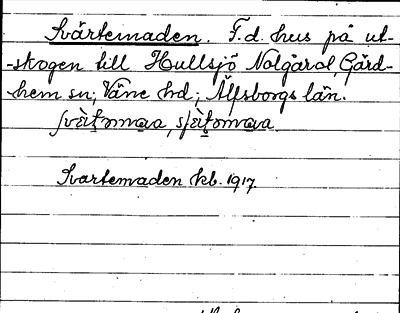 Svärtemaden. F.d. hus på ut-
-skogen till Hullsjö Nolgård, Gärd-
hem sn; Väne hd; Älfsborgs län.

Svartemaden kb. 1917.